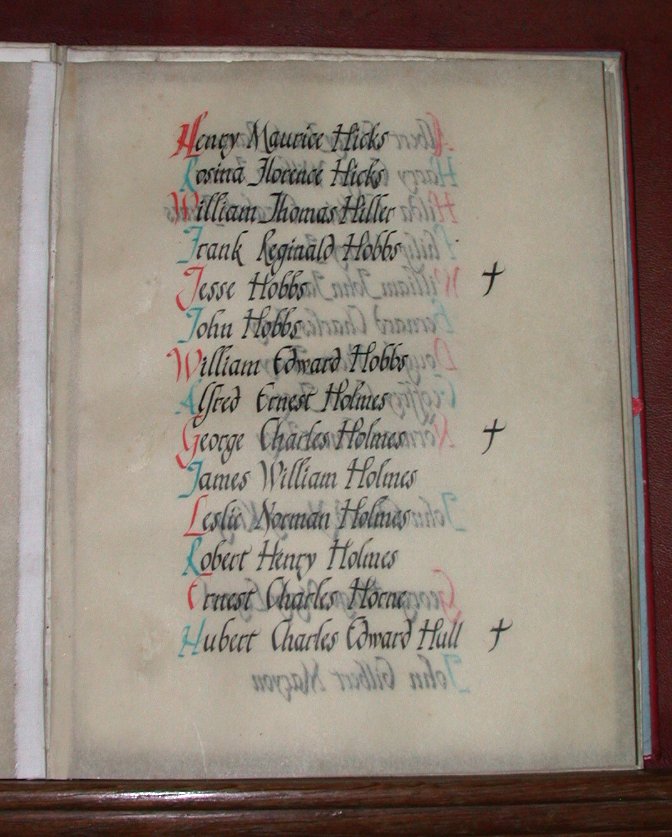 Henry Maurice Hicks
Rosina Florence Hicks
William Thomas Hiller
Frank Reginald Hobbs
Jesse Hobbs ✝
John Hobbs
William Edward Hobbs
Alfred Ernest Holmes
George Charles Holmes ✝
James William Holmes
Leslie Norman Holmes
Robert Henry Holmes
Ernest Charles Horne
Hubert Charles Edward Hull ✝